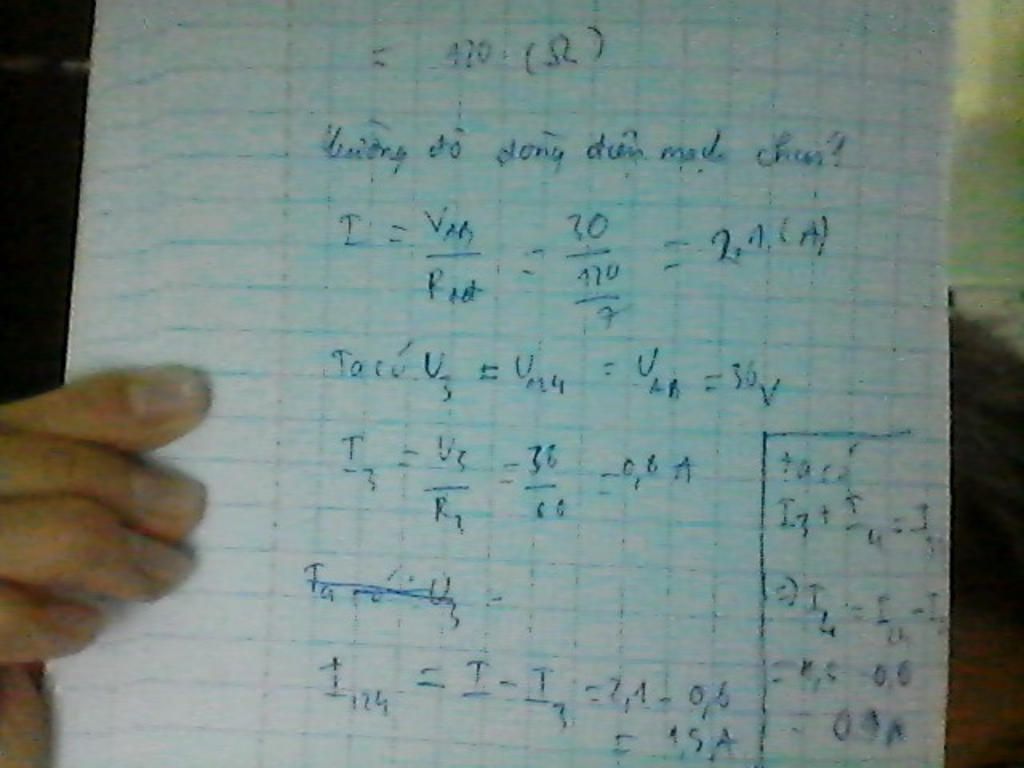 = 120 (Ω)
Cường độ dòng điện mạch chính
I = U_AB / R_tđ = 30 / (120/7) = 2,1 (A)
Ta có U_3 = U_124 = U_AB = 36 V
I_3 = U_3 / R_3 = 36 / 60 = 0,6 A
Ta có U_3 =
I_124 = I - I_3 = 2,1 - 0,6
= 1,5 A
ta có
I_3 + I_4 = I
=> I_4 = I - I
- 0,6
0,9 A